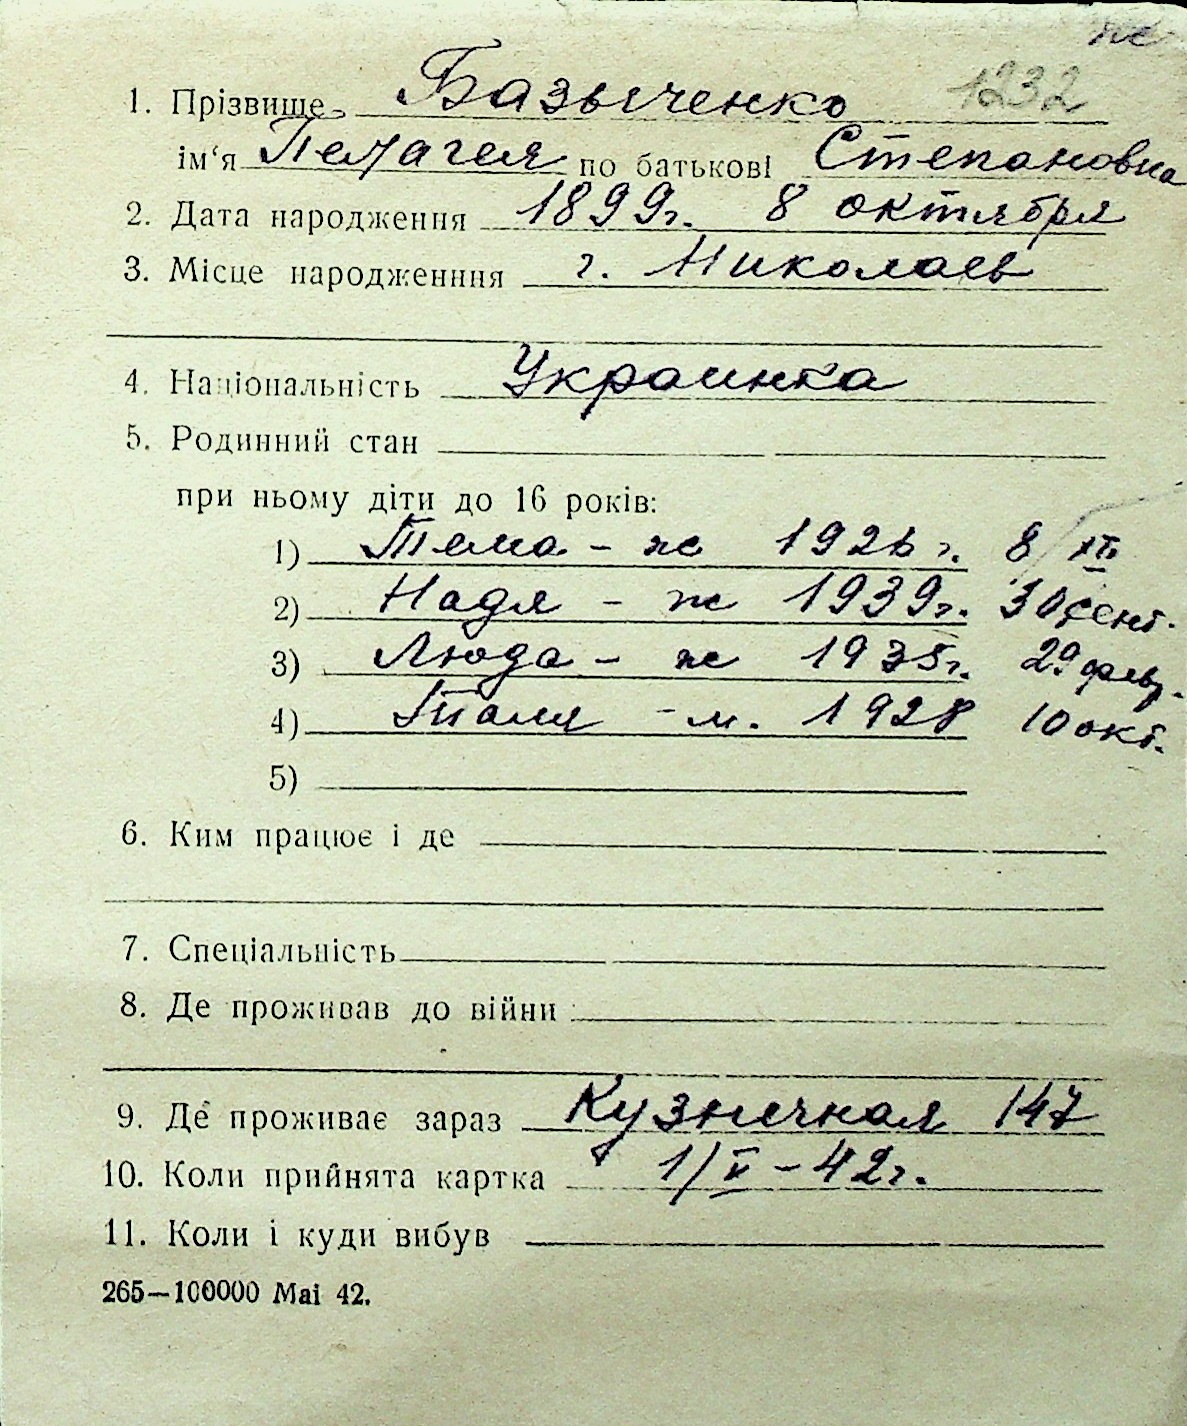 ж
1. Прізвище Базыченко 1232
ім‘я Пелагея по батькові Степановна
2. Дата народження 1899г. 8 октября
3. Місце народженння г. Николаев
4. Національність Украинка
5. Родинний стан
при ньому діти до 16 років:
1) Тема - ж 1926 г. 8/XII
2) Надя - ж 1939г. 30 сент.
3) Люда - ж 1935г. 29 февр.
4) Толя - м. 1928 10 окт.
5)
6. Ким працює і де
7. Спеціальність
8. Де проживав до війни
9. Де проживає зараз Кузнечная 147
10. Коли прийнята картка 1/V - 42г.
11. Коли і куди вибув
265—100000 Mai 42.